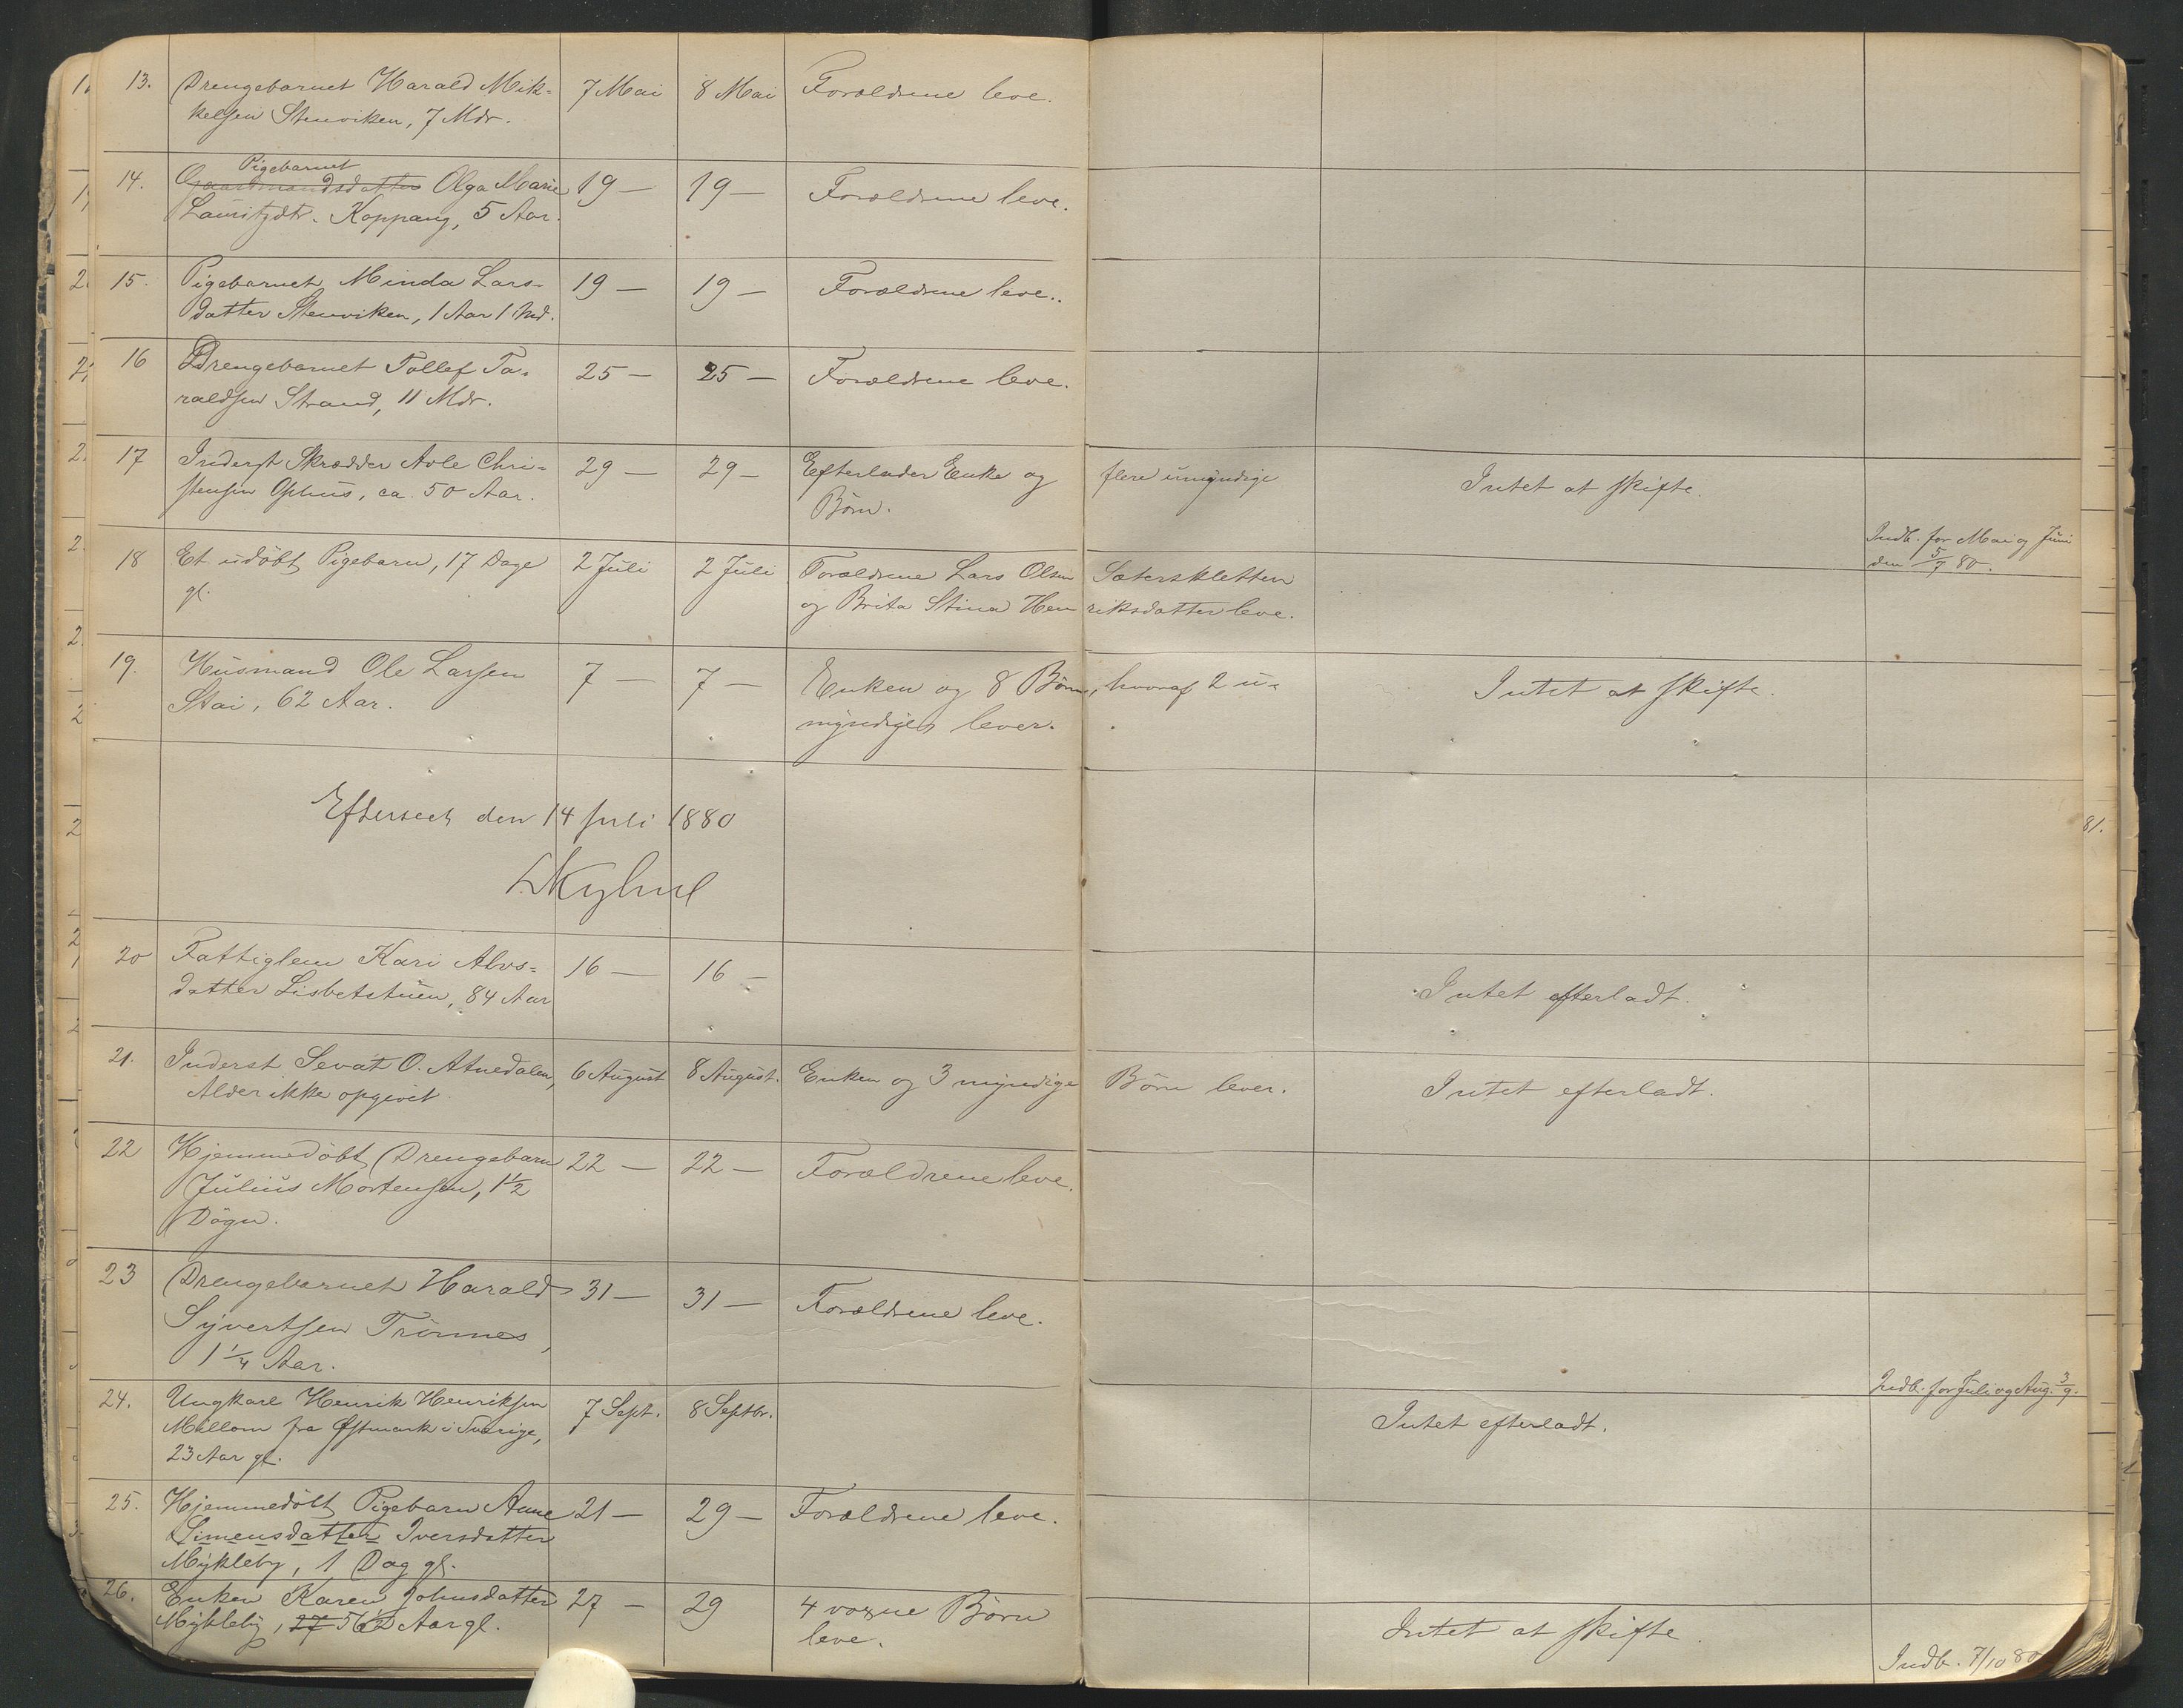 13. Drengebarnet Harald Mik- 7 Mai 8 Mai Forældrene leve.
kelsen Stenviken, 7 Mdr.
Pigebarnet
14. Gaardmandsdatter Olga Marie 19 — 19 — Forældrene leve.
Lauritzdtr. Koppang, 5 Aar.
15. Pigebarnet Minda Lars- 19 — 19 — Forældrene leve.
datter Stenviken, 1 Aar 1 Md.
16 Drengebarnet Tollef Ta- 25 — 25 — Forældrene leve.
raldsen Strand, 11 Mdr.
17 Inderst Skrædder Avle Chri- 29 — 29 — Efterlader Enke og flere umyndige Intet at skifte.
stensen Ophus, ca. 50 Aar. Børn.
Indb. for Mai og Juni
18 Et udøbt Pigebarn, 17 Dage 2 Juli 2 Juli Forældrene Lars Olsen Sæterskletten den 5/7 80.
gl. og Brita Stina Henriksdatter leve.
19. Husmand Ole Larsen 7 — 7 — Enken og 8 Børn, hvoraf 2 u- Intet at skifte.
Stai, 62 Aar. myndige lever.
Efterseet den 14 Juli 1880
20 Fattiglem Kari Alvs- 16 — 16 —
datter Lisbetstuen, 84 Aar Intet efterladt.
21. Inderst Sevat O. Atnedalen, 6 August 8 August. Enken og 3 myndige Børn lever. Intet efterladt.
Alder ikke opgivet
22 Hjemmedøbt Drengebarn 22 — 22 — Forældrene leve.
Julius Mortensen, 1 1/2
Døgn.
23 Drengebarnet Harald 31 — 31 — Forældrene leve.
Syvertsen Trønnes,
1 1/4 Aar.
Indb. for Juli og Aug. 3/9.
24. Ungkarl Henrik Henriksen 7 Sept. 8 Septbr. Intet efterladt.
Millom fra Østmark i Sverige,
23 Aar gl.
25. Hjemmedøbt Pigebarn Anne 21 — 29 — Forældrene leve.
Simensdatter Iversdatter
Mykleby, 1 Dag gl.
26. Enken Karen Johnsdatter 27 — 29 4 voxne Børn Intet at skifte
Mykleby, 27 Aar gl. leve.
Indb. 7/10 80
81.